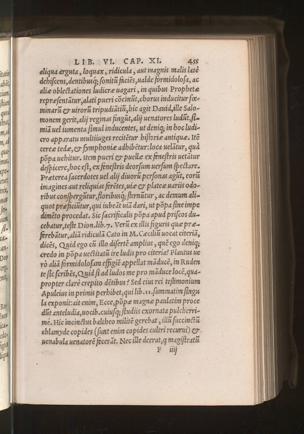 LIB. VI. CAP. XI. 455
aliqua arguta, loquax, ridicula, aut magnis malis latè
dehiscens, dentibusq; sonitũ faciẽs, ualde formidolosa, ac
aliæ oblectationes ludicræ uagari, in quibus Prophetæ
repræsentãtur, alati pueri cõcinũt, chorus inducitur fœ-
minarũ & uirorũ tripudiãtiũ, hic agit Dauid, ille Salo-
monem gerit, alij reginas fingũt, alij uenatores ludũt, si-
miã uel iumenta simul inducentes, ut deniq; in hoc ludi-
cro apparatu multiiuges recitẽtur historiæ antiquæ. Itẽ
cereæ tedæ, & symphoniæ adhibẽtur: loca uelãtur, quà
põpa uehitur. Item pueri & puellæ ex fenestris uetãtur
despicere, hoc est, ex fenestris deorsum uersum spectare.
Præterea sacerdotes uel alij diuorũ personas agũt, corũ
imagines aut reliquias ferẽtes, uiæ & plateæ uarijs odo-
ribus conspergũtur, floribusq; sternũtur, ac demum ali-
quot præficiũtur, qui iubeãt uiã dari, ut põpa sine impe
dimẽto procedat. Sic sacrificalis põpa apud priscos du-
cebatur, teste Dion. lib. 7. Verũ ex illis figuris quæ præ-
ferebãtur, aliã ridiculã Cato in M. Cæciliũ uocat citeriã,
dicẽs, Quid ego cũ illo disertẽ amplius, quẽ ego deniq;
credo in põpa uectitatũ ire ludis pro citeria? Plautus ue
rò aliã formidolosam effigiẽ appellat mãduce, in Ruden
te sic scribẽs, Quid si ad ludos me pro mãduce locẽ, qua-
propter clarè crepito dẽtibus? Sed eius rei testimonium
Apuleius in primis perhibet, qui lib. 11. summatim singu
la exponit: ait enim, Ecce, põpæ magnæ paulatim proce
dũt anteludia, uotiuis cuiusq; studijs exornata pulcherri-
mè. Hic incinctus baltheo militẽ gerebat, illũ succinctũ
chlamyde copides (sunt enim copides cultri recurui) &
uenabula uenatorẽ fecerãt. Nec ille deerat, q magistratũ
F iiij